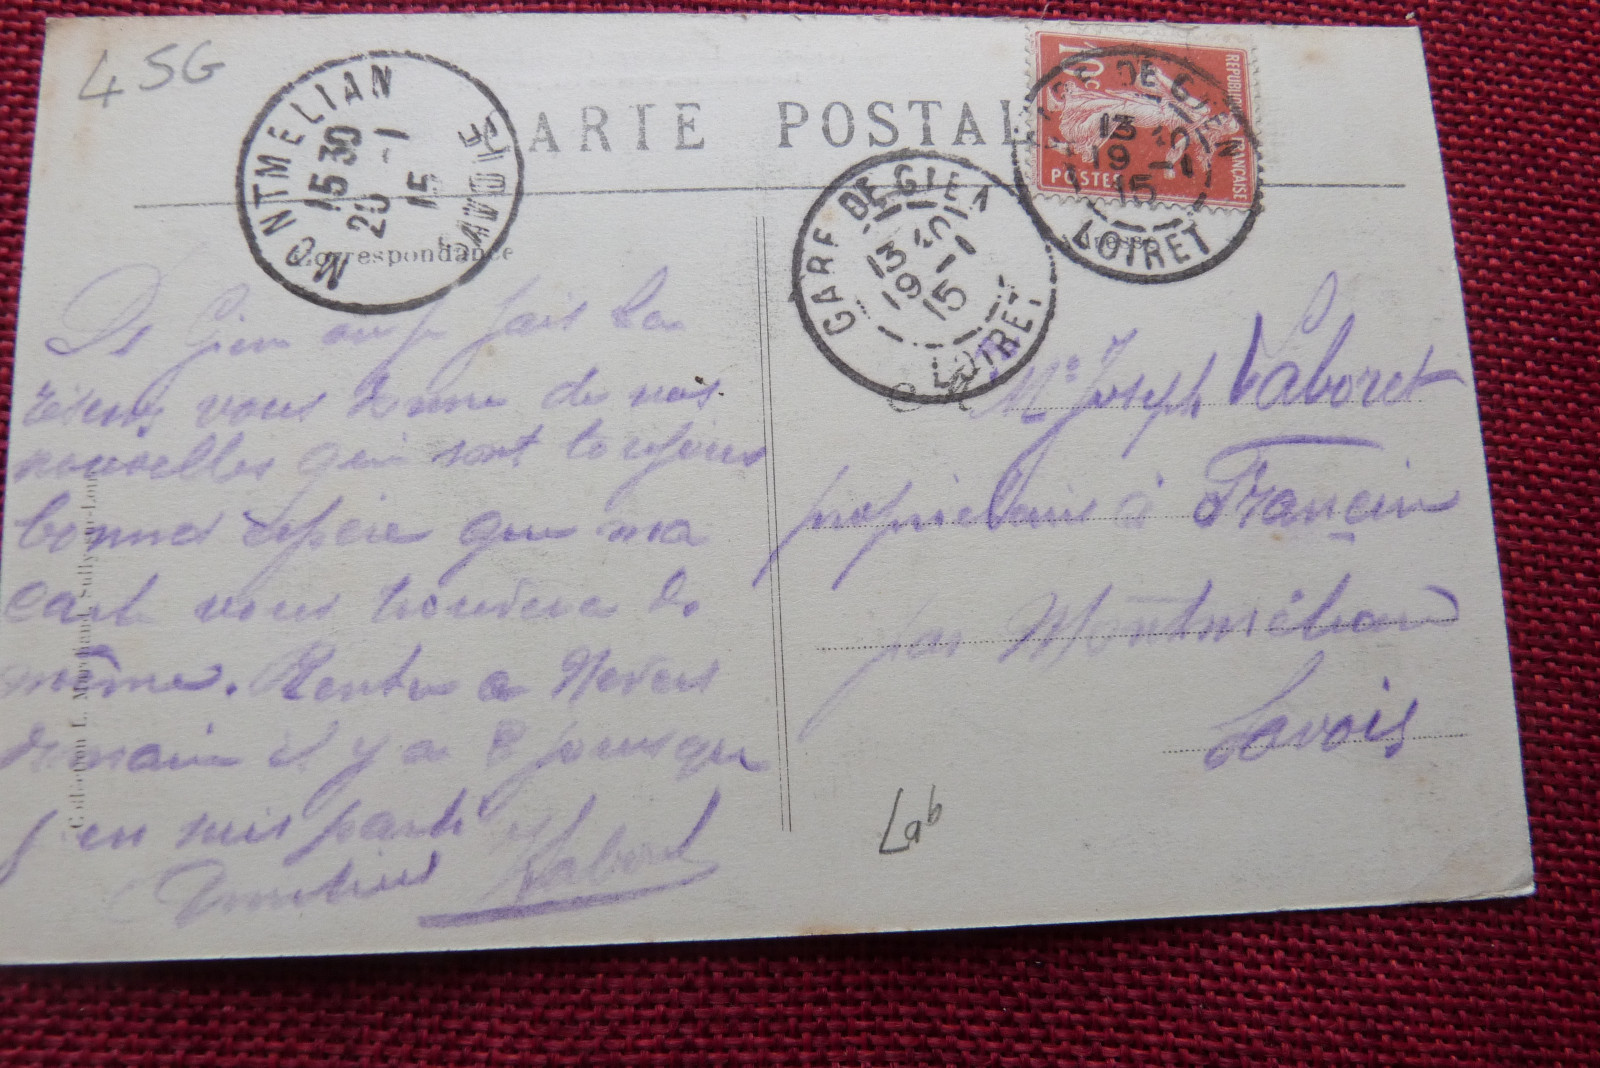 4 SG
CARTE POSTALE
MONTMELIAN
15 30
20 -1
15
SAVOIE
Correspondance
De Gien où je fais la
vous donne de nos
nouvelles qui sont toujours
bonnes espère que ma
carte vous trouvera de
même. Rentre a Nevers
demain il y a 8 jours que
j en suis parti
Laboret
GARE DE GIEN
13
19 -1
15
LOIRET
REPUBLIQUE FRANÇAISE
10c
POSTES
GARE DE GIEN
13
19 -1
15
LOIRET
Adresse
Mr Joseph Laboret
propriétaire à Francin
par Montmélian
Savoie
Lab
Collection L. Marchand, Sully-sur-Loire